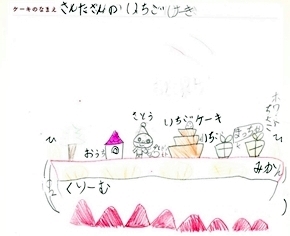 ケーキのなまえ さんたさんの いちごけーき
さとう
いちごケーキ
いちご
ホワイト
おうち
ひ
ひ
みかん
くりーむ